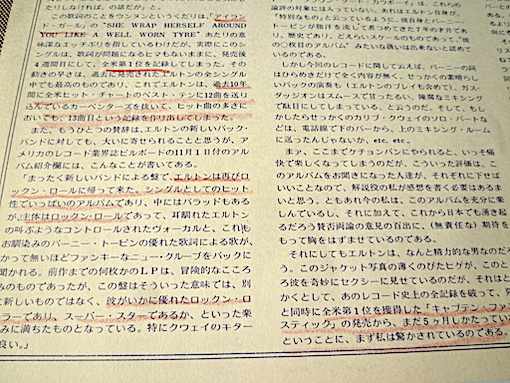 たりしなければ、の話だが」と。
この歌詞のことをウンヌンというくだりは、「アイラン
ド・ガール」の“SHE WRAP HERSELF AROUND
YOU LIKE A WELL WORN TYRE” あたりの
意味深なエッチぶりを指しているわけだが、実際にこのシ
ングルは、歌詞が問題になるヒマもないままに、発売後
4週間目にして、全米第1位を記録してしまった。その
動きの早さは、過去に発売されたエルトンの全シングル
中でも最高のものであり、これでエルトンは、過去10年
間に全米ヒット・チャートのベスト・テンに12曲を送り
込んでいるカーペンターズを抜いて、ヒット曲の多さに
おいても、13曲目という記録を作り出してしまった。
また、もうひとつの賛辞は、エルトンの新しいバック・
バンドに対しても、大いに寄せられることと思うが、ア
メリカのレコード業界誌ビルボードの11月1日付のアル
バム紹介欄には、こんなことが書いてある。
「まったく新しいバンドによる盤で、エルトンは再びロ
ックン・ロールに帰って来た。シングルとしてのヒット
性でいっぱいのアルバムであり、中にはバラッドもある
が、主体はロックン・ロールであって、耳馴れたエルトン
の叫ぶようなコントロールされたヴォーカルと、これも
お馴染みのバーニー・トーピンの優れた歌詞による歌が、
かつて無いほどファンキーなニュー・グループをバックに
聞かれる。前作までの何枚かのLPは、冒険的なこころ
みのものであったが、この盤はそういった意味では、別
に新しいものではなく、彼がいかに優れたロックン・ロ
ーラーであり、スーパー・スターであるか、といった楽
しみに満ちたものとなっている。特にクウェイのギター
が良い。」
論評の対象にはいっていない。あれはエルトン自身が、
「特別なもの」と云っているように、彼自身とバーニー・
トーピンが脂汗を流して煮つめてきた7年の才月であ
り、歴史であり、どえらいスケールのものであって、“他
の〇枚目のアルバム”みたいな扱いは出来ないと認めて
いるのである。
しかし今回のレコードに関して云えば、バーニーの詞
はひらめきだけで全く内容が無く、せっかくの素晴らし
いバックの演奏も（エルトンのプレイも含めて）、ガス・
ダッジョンはスムースで甘ったるい、陳腐なミキシング
で駄目にしてしまっている、と云うのだ。そして、もし
かしたらせっかくのカリブ・クウェイのソロ・パートな
どは、電話線で下のバーから、上のミキシング・ルーム
に送ったんじゃないか、etc. etc.。
まァ、ここまでケチョンパンにやられると、いっそ痛
快で楽しくなってしまうのだが、こういった評価は、こ
のアルバムをお聞きになった人達が、それぞれに下せば
いいことなので、解説役の私が感想を書く必要はあるま
いと思う。ともあれ今の私は、このアルバムを充分に楽
しんでいるし、それに加えて、これから日本でも湧き起
るだろう賛否両論の意見の百出に、（無責任な）期待を
もって胸をはずませているのである。
それにしてもエルトンは、なんと精力的な男なのだろ
う。このジャケット写真の薄くのびたヒゲが、このとこ
ろ彼を奇妙にセクシーに見せているのだが、それはと
かくとして、あのレコード史上の全記録を破って、
と同時に全米第1位を獲得した「キャプテン・ファ
スティック」の発売から、まだ5ヶ月しかたってい
ということに、まず私は驚かされているのである。